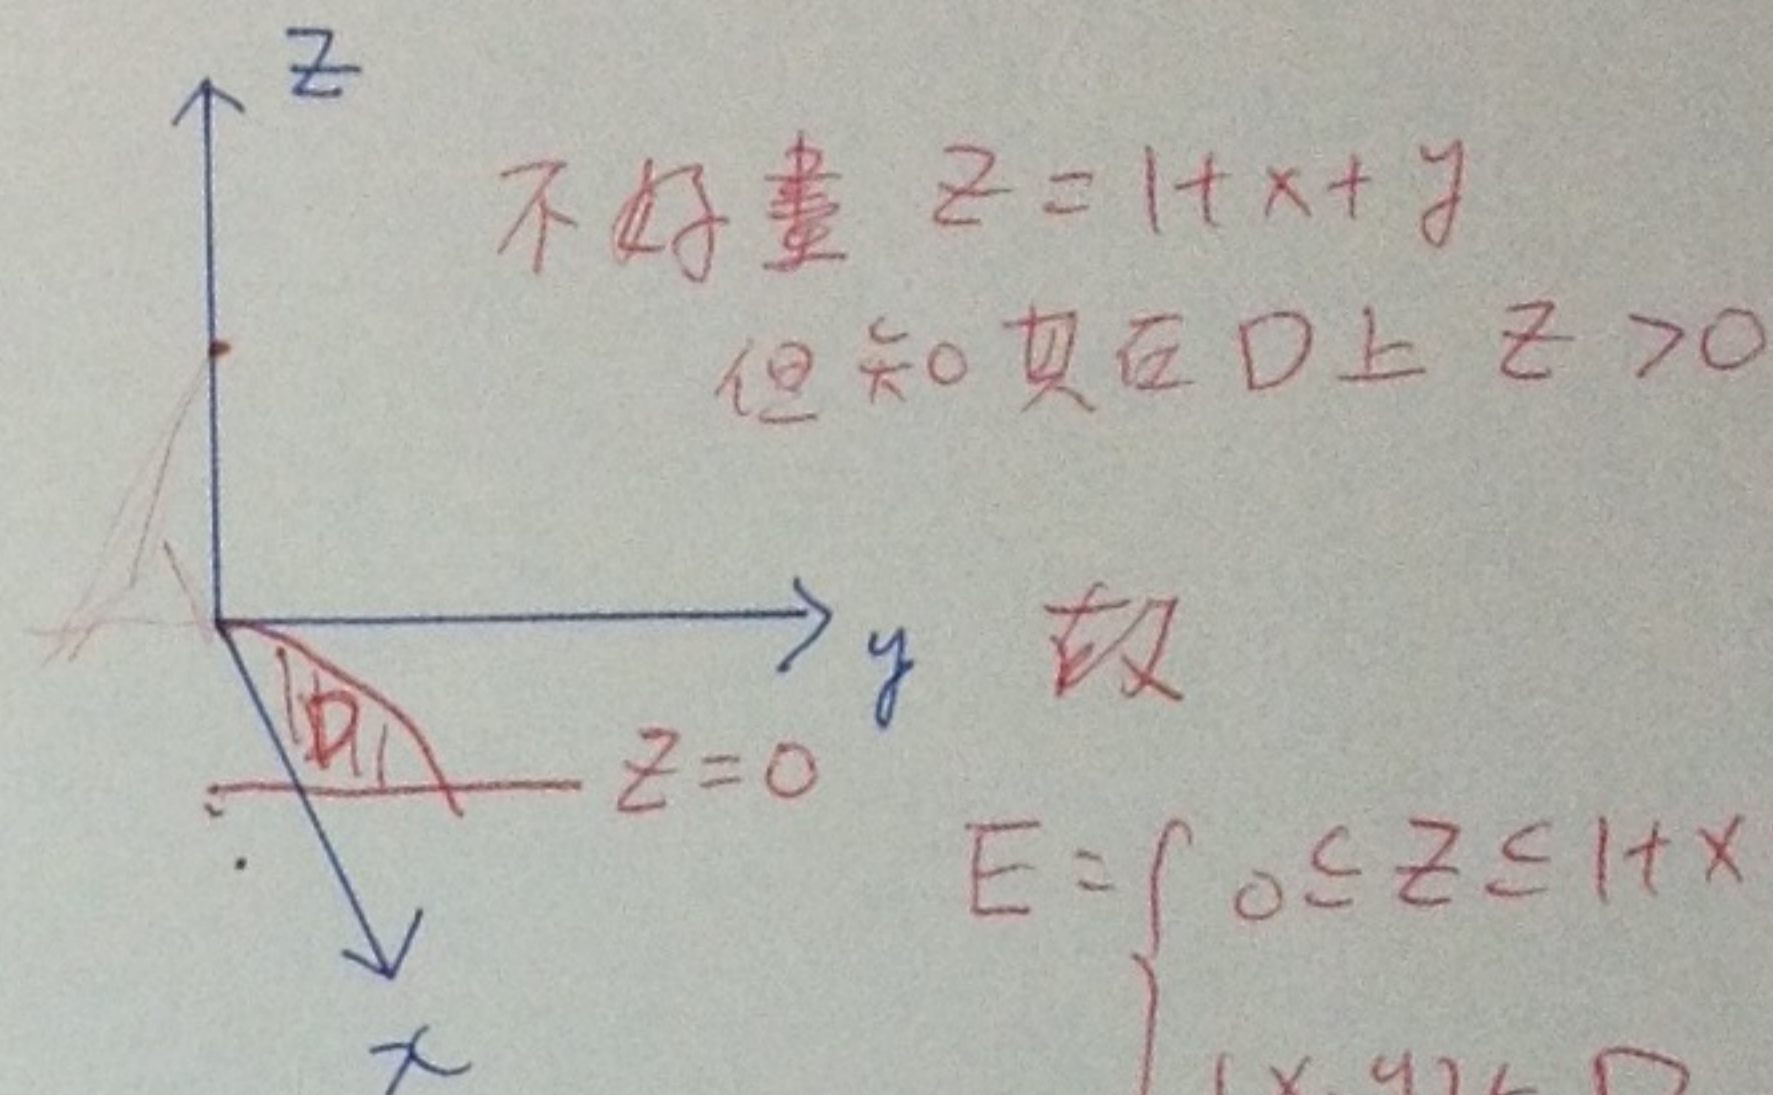 z
不好畫 z = 1 + x + y
但知其在 D 上 z > 0
y
故
D
z = 0
E = { 0 ≤ z ≤ 1 + x
(x, y) ∈ D
x